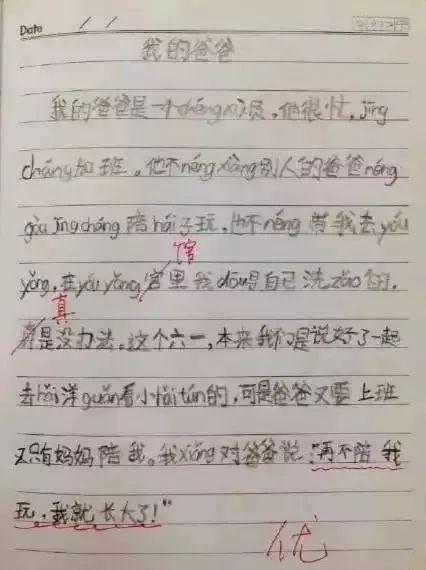 Date / /
我的爸爸
我的爸爸是一个chéngxù员，他很忙，jīng
cháng加班。他不néngxiàng别人的爸爸néng
gòu jīngcháng陪hái子玩，也不néng带我去yóu
yǒng，在yóuyǒng馆里我dōu是自己洗zǎo的，
真是没办法。这个六一，本来我们是说好了一起
去hǎi洋guǎn看小hǎitún的，可是爸爸又要上班
又只有妈妈陪我。我xiǎng对爸爸说："再不陪我
玩，我就长大了！"
优